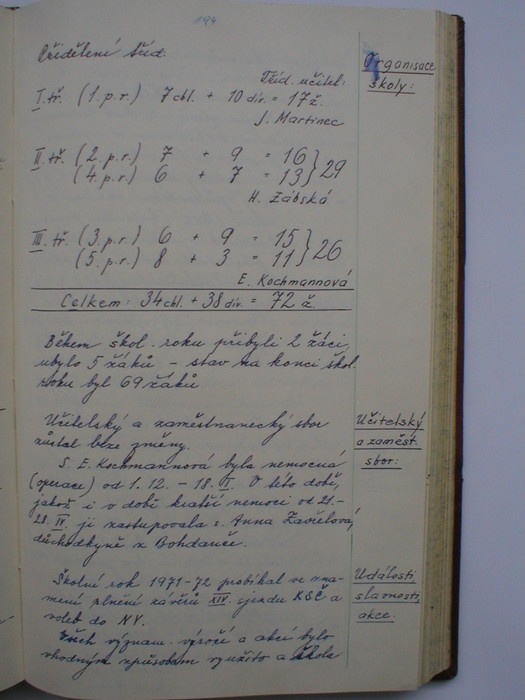 194
Přidělení tříd:
Organisace
školy:
Tříd. učitel:
I. tř. (1. p. r.) 7 chl. + 10 dív. = 17 ž.
J. Martinec
II. tř. (2. p. r.) 7 + 9 = 16 } 29
(4. p. r.) 6 + 7 = 13
H. Žábská
III. tř. (3. p. r.) 6 + 9 = 15 } 26
(5. p. r.) 8 + 3 = 11
E. Kochmannová
Celkem: 34 chl. + 38 dív. = 72 ž.
Během škol. roku přibyli 2 žáci,
ubylo 5 žáků – stav na konci škol.
roku byl 69 žáků
Učitelský a zaměstnanecký sbor
zůstal beze změny.
Učitelský
a zaměst.
sbor:
S. E. Kochmannová byla nemocná
(operace) od 1. 12. – 18. I. V této době,
jakož i v době kratší nemoci od 21. –
28. IV. ji zastupovala s. Anna Zavřelová,
důchodkyně z Bohdanče.
Události,
slavnosti,
akce.
Školní rok 1971–72 probíhal ve zna-
mení plnění závěrů XIV. sjezdu KSČ a
voleb do NV.
Všech význam. výročí a akcí bylo
vhodným způsobem využito a škola